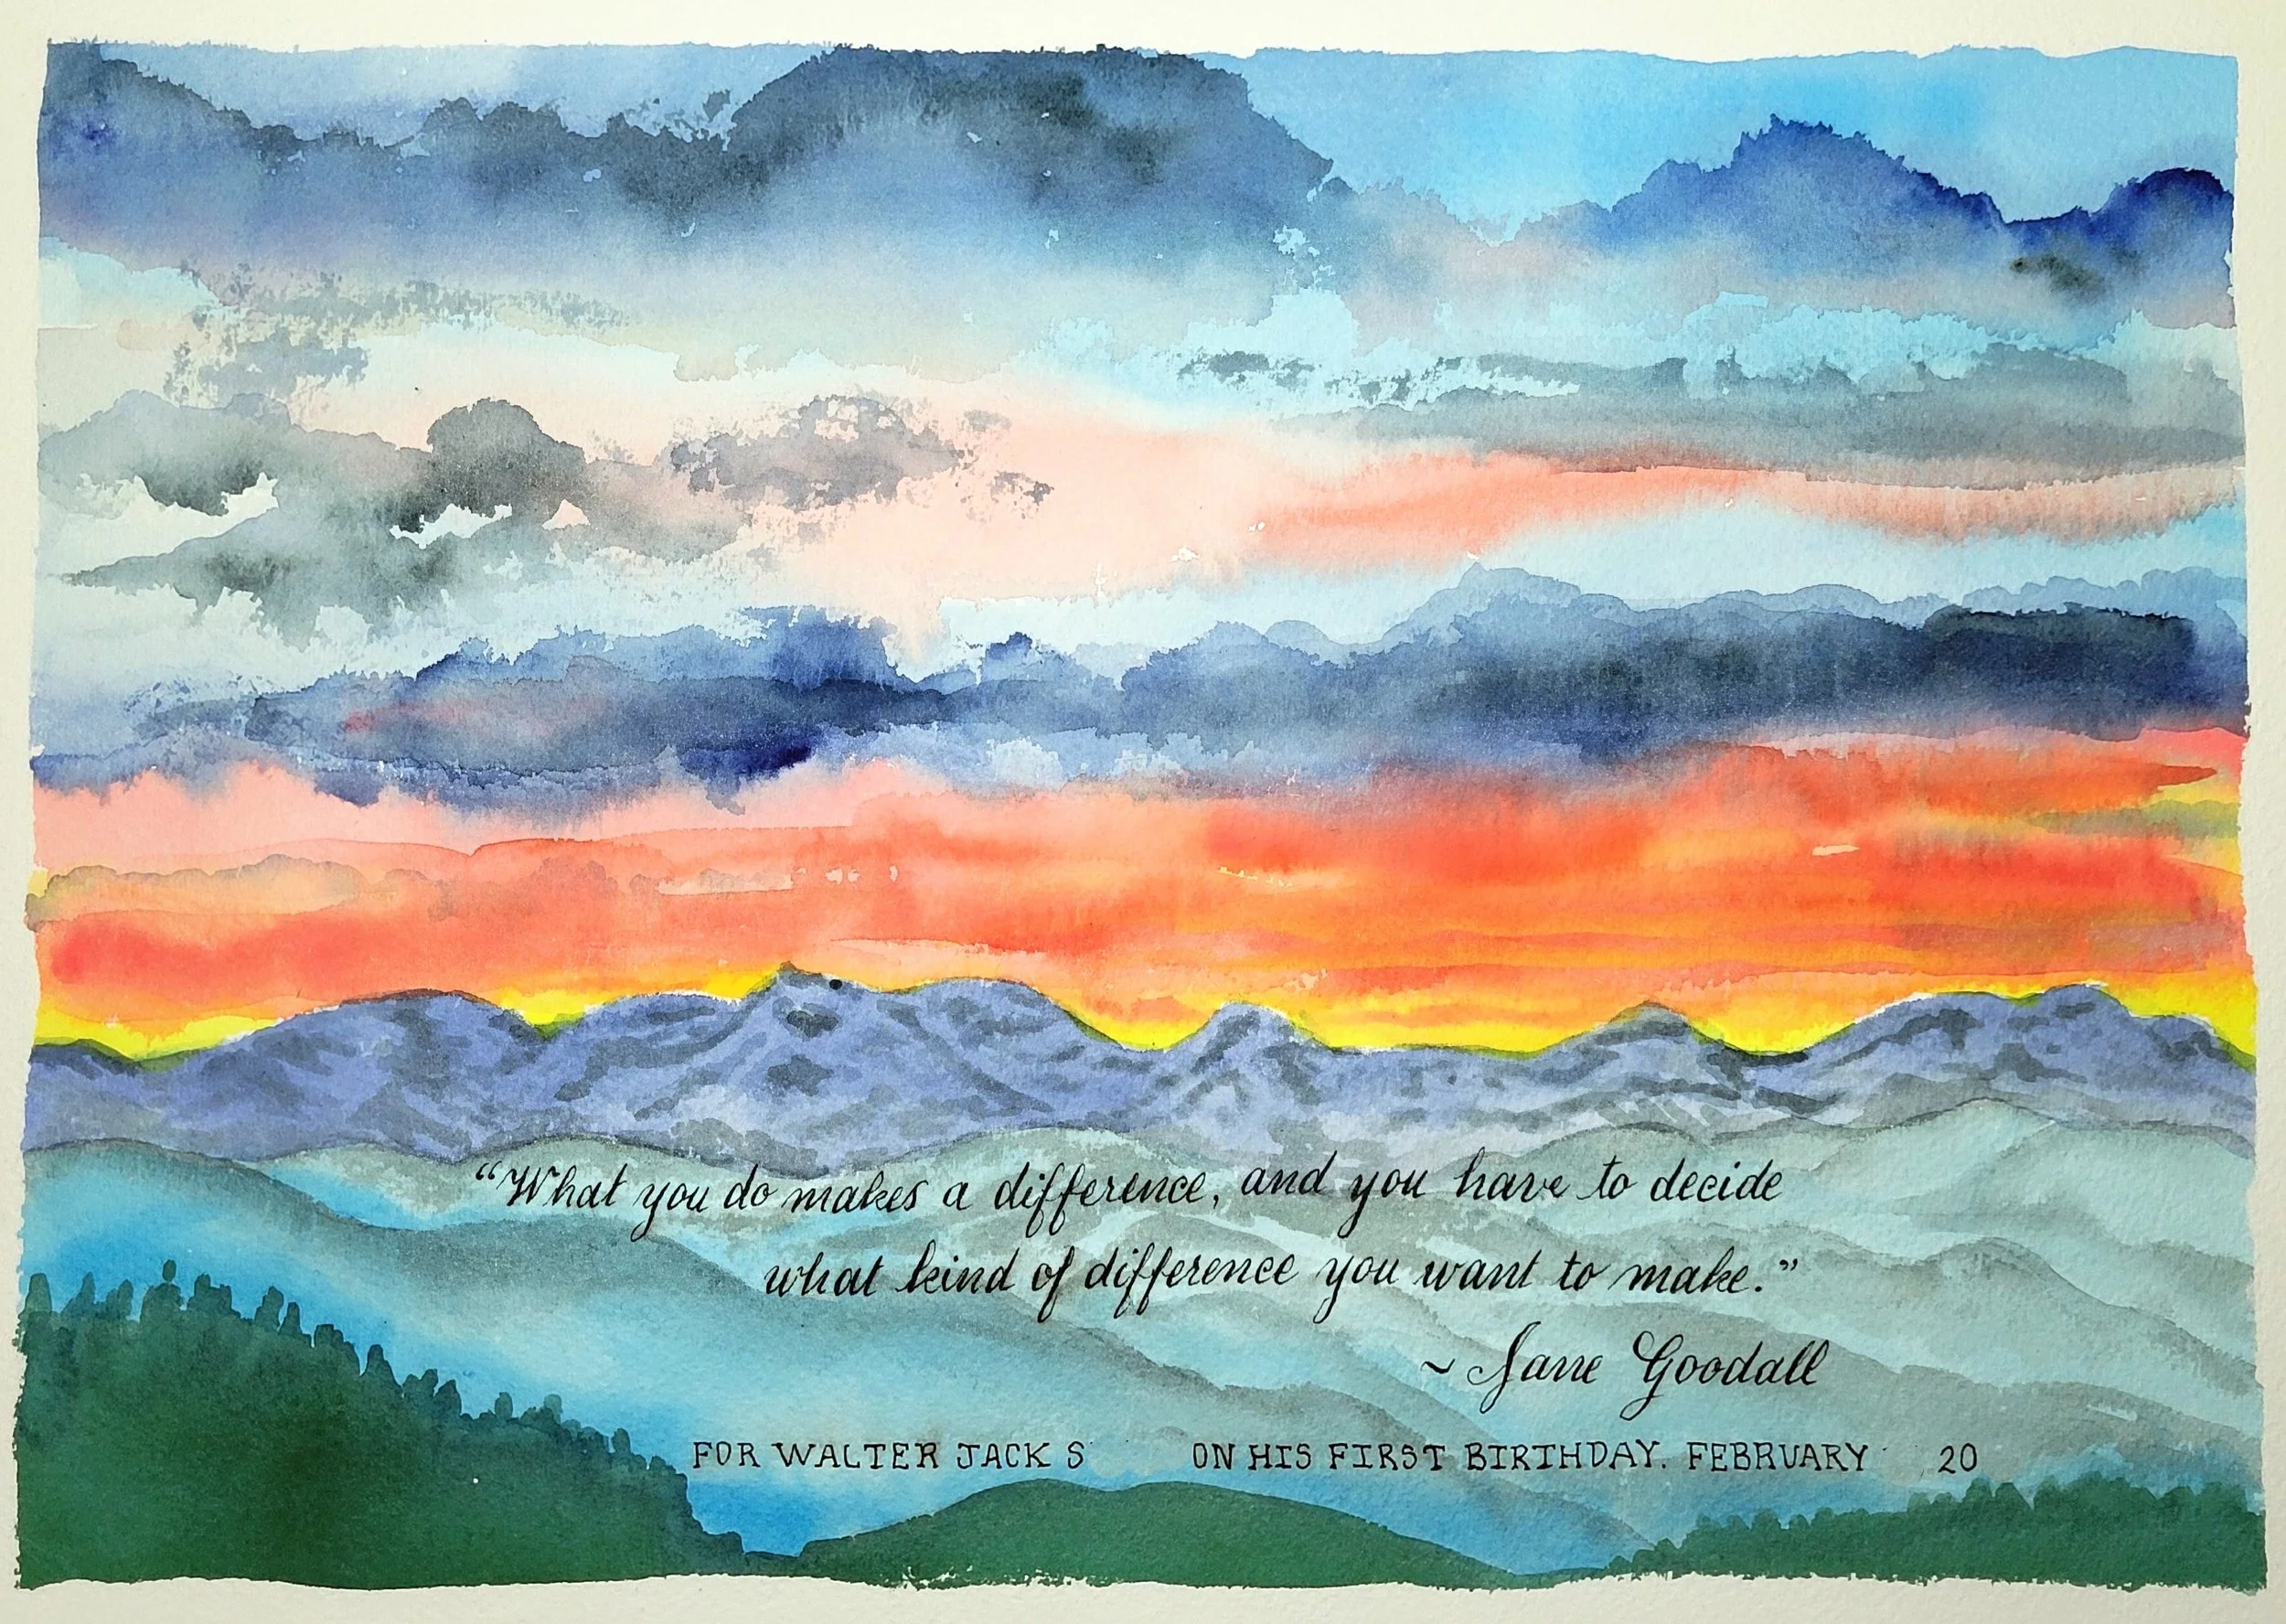 “What you do makes a difference, and you have to decide
what kind of difference you want to make.”
~ Jane Goodall
FOR WALTER JACK S ON HIS FIRST BIRTHDAY. FEBRUARY 20